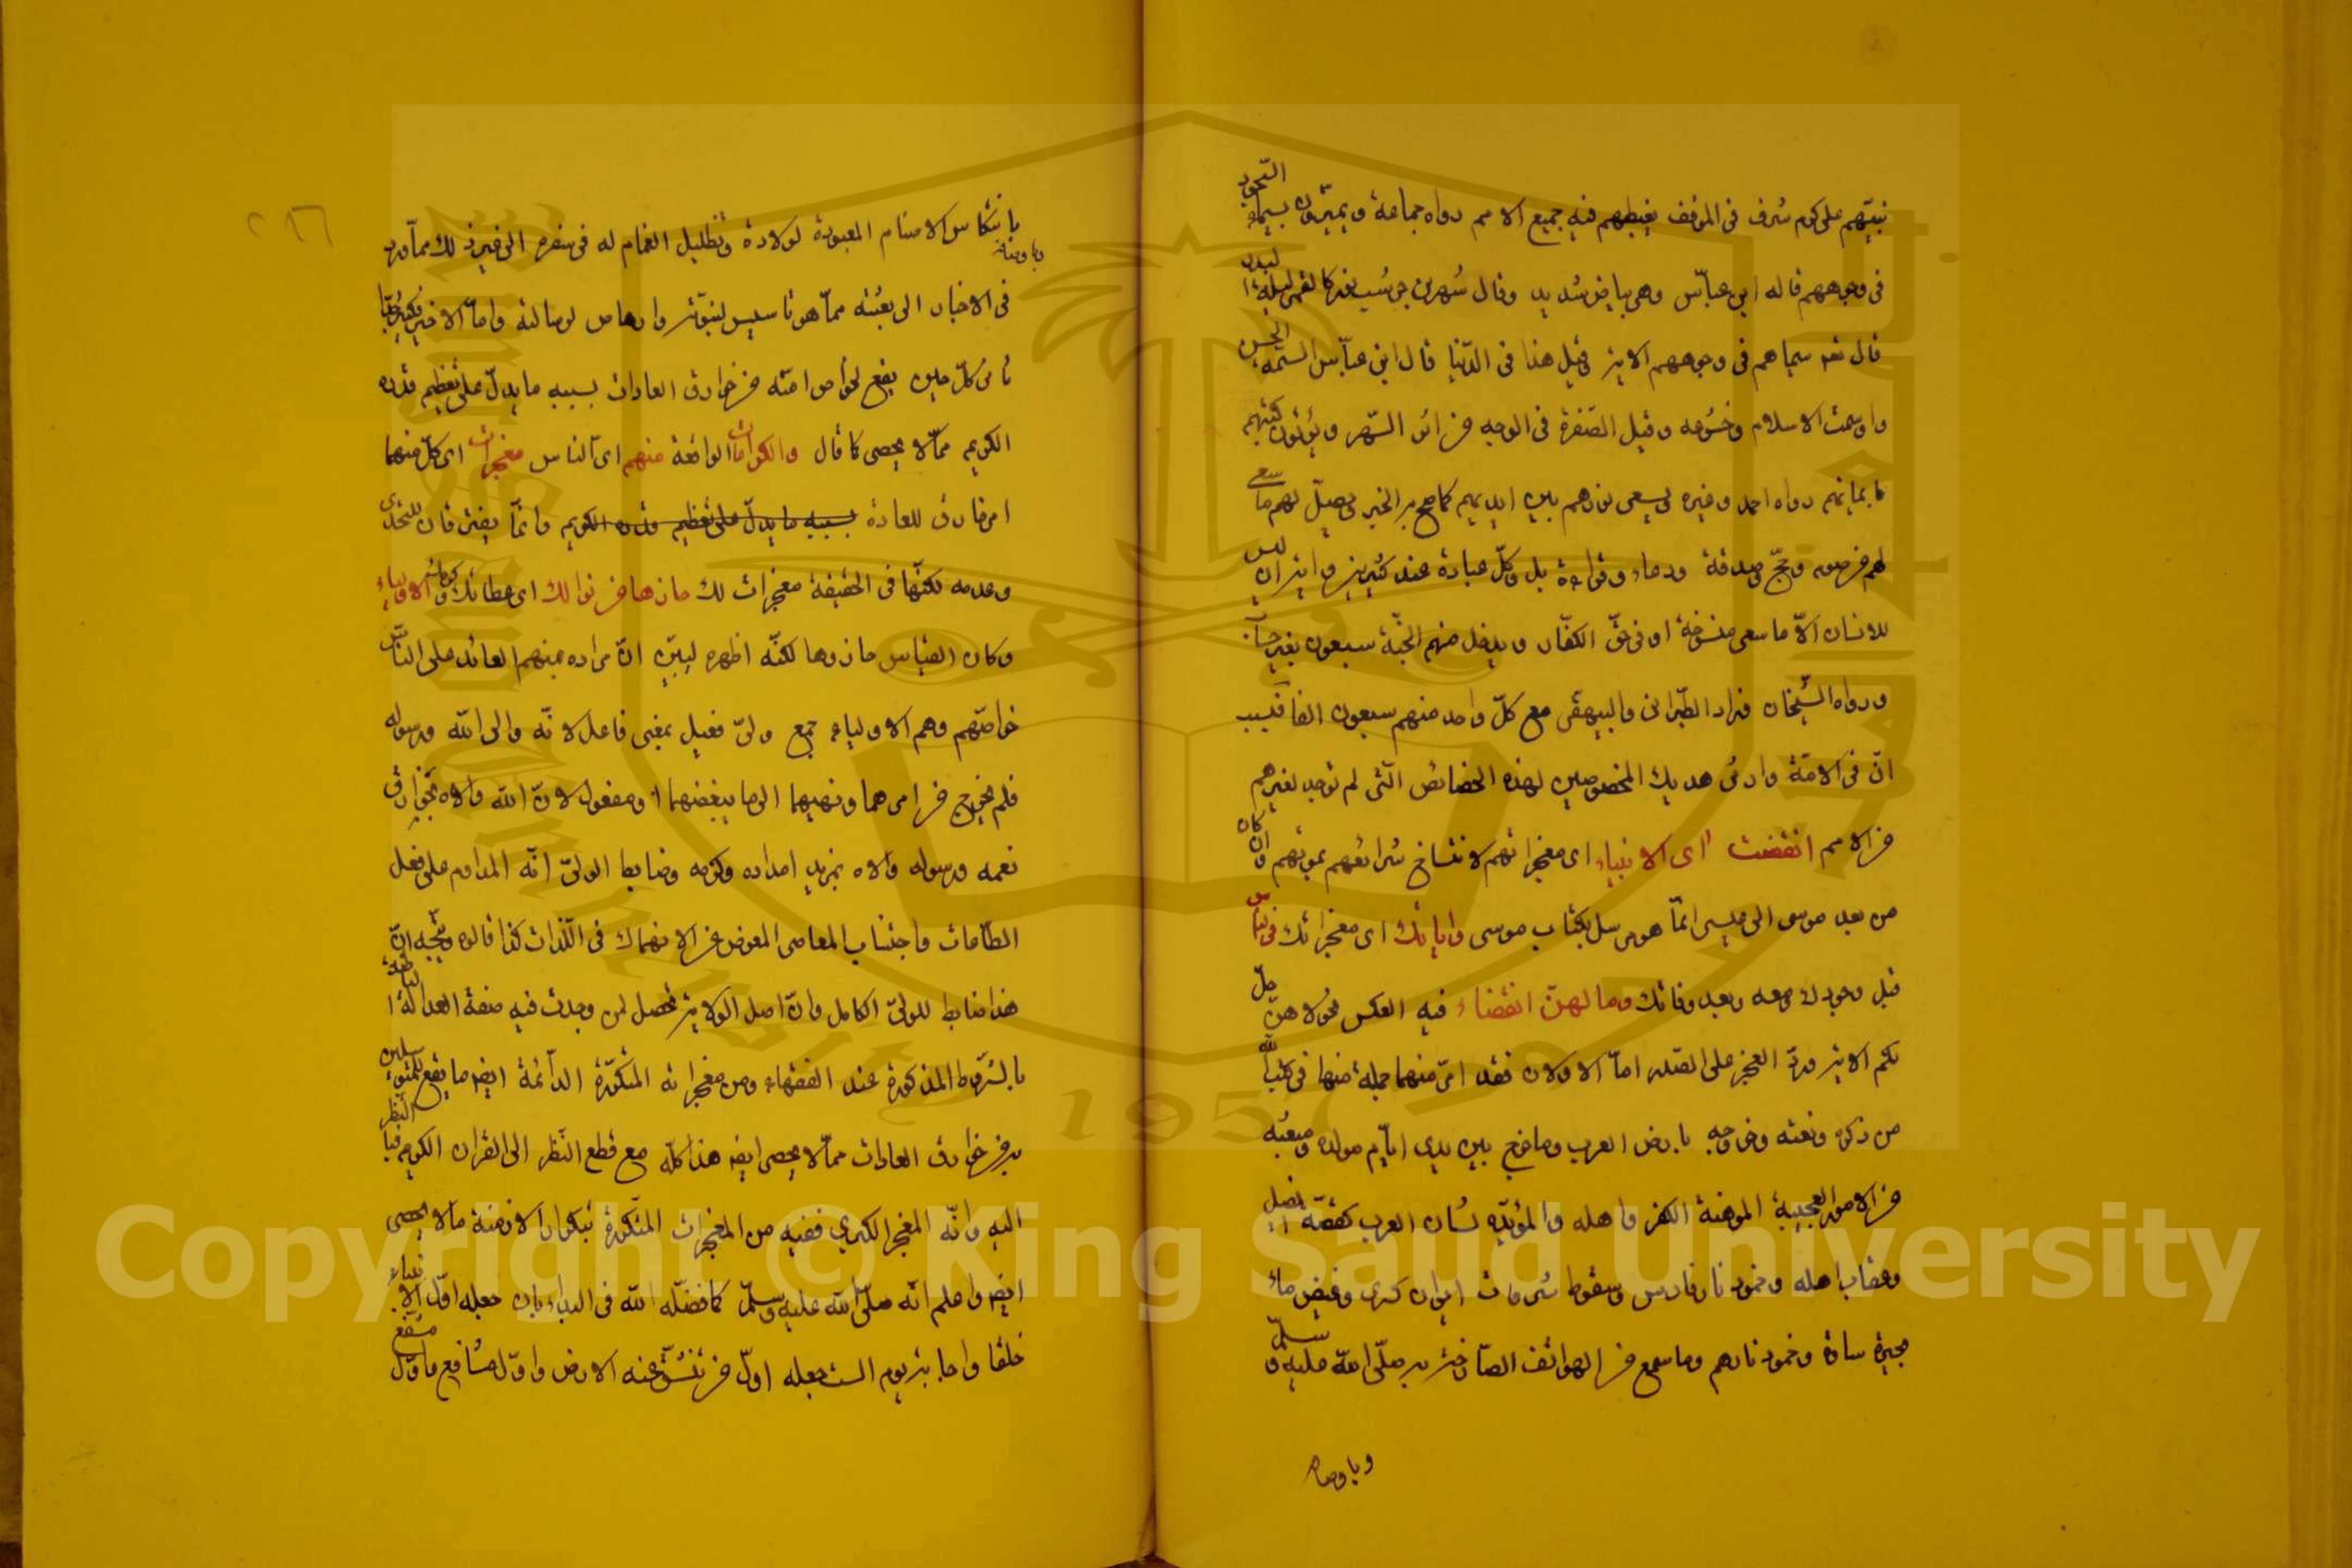 نبيهم على كوم مشرف فى الموقف يغبطهم فيه جميع الامم رواه جماعة ويميزون بسيماء السجود
فى وجوههم قاله ابن عباس وهى بياض شديد وقال شهر بن حوشب نور كالقمر ليلة البدر
قال تعه سيماهم فى وجوههم الاية قيل هذا فى الدنيا قال ابن عباس السمة الحسن
وا وسمت الاسلام وخشوعه وقيل الصفرة فى الوجه من اثر السهر ويؤتون كتبهم
بايمانهم رواه احمد وغيره ويسعى نورهم بين ايديهم كما صح به الخبر ويصل لهم ما سعى
لهم من صوم وحج وصدقة ودعاء وقراءة بل وكل عبادة عند كثيرين واية ان ليس
للانسان الا ما سعى منسوخة او فى حق الكفار ويدخل منهم الجنة سبعون بغير حساب
ورواه الشيخان وزاد الطبرانى والبيهقى مع كل واحد منهم سبعون الفا فبسبب
ان فى الامة وارثى هديك المخصوصين لهذه الخصائص التى لم توجد لغيرهم
من الامم انقضت اى الانبياء اى معجزاتهم لانتساخ شرائعهم بموتهم وان كان
من بعد موسى الى عيسى انما هو مرسل بكتاب موسى واياتك اى معجزاتك فى الناس
قبل وجودك ومعه وبعد وفاتك وما لهن انقضاء فيه العكس نحو لا هن حل
لكم الاية ورد العجز على الصدر اما الاولان فقد امر منهما جملة منها فى كتب الله
من ذكره ونعته وخروجه بارض العرب وما خرج بين يدى ايام مولده ومبعثه
من الامور العجيبة الموهنة الكفر واهله والمؤيدة لشان العرب كقصة الفيل
وعقاب اهله وخمود نار فارس وسقوط شرفات ايوان كسرى وغيض ماء
بحيرة ساوة وخمود نارهم وما سمع من الهواتف الصارخة به صلى الله عليه وسلم
وباوصافه
بانتكاس الاصنام المعبودة لولادة وتظليل الغمام له فى سفره الى غير ذلك مما ورد
فى الاخبار الى بعثته مما هو تاسيس لنبوته وارهاص لرسالته واما الاخير فكثير جدا
كل حين يقع لخواص امته من خوارق العادات بسببه ما يدل على تعظيم قدره
الكريم مما لا يحصى كما قال والكرامات الواقعة منهم اى الناس معجزات اى كل منهما
امر خارق للعادة بسببه ما يدل على تعظيم قدره الكريم وانما يفترقان للتحدى
وعدمه لكنها فى الحقيقة معجزات لك حازها من نوالك اى عطائك وكرمك الاولياء
وكان القياس حازوها لكنه اظهره ليبين ان مراده بمنهم العائد على الناس
خواصهم وهم الاولياء جمع ولى فعيل بمعنى فاعل لانه والى الله ورسوله
فلم يخرج من امرهما ونهيهما الى ما يبغضهما او مفعول لان الله والاه بخوارق
نعمه ورسوله والاه بمزيد امداده وكرمه وضابط الولى انه المداوم على فعل
الطاعات واجتناب المعاصى المعرض عن الانهماك فى اللذات كذا قالوه ويتجه ان
هذا ضابط للولى الكامل وان اصل الولاية تحصل لمن وجدت فيه صفة العدالة الباطنة
بالشروط المذكورة عند الفقهاء ومن معجزاته المتكررة الدائمة ايضه ما يقع للمتوسلين
به من خوارق العادات مما لا يحصى ايضه هذا كله مع قطع النظر الى القران الكريم فبالنظر
اليه وانه المعجز الكبرى ففيه من المعجزات المتكررة بتكرار الازمنة مالا يحصى
ايضه واعلم انه صلى الله عليه وسلم كما فضله الله فى البداء بان جعله اول الانبياء
خلقا واجابة يوم الست جعله اول من تنشق عنه الارض واول شافع واول مشفع